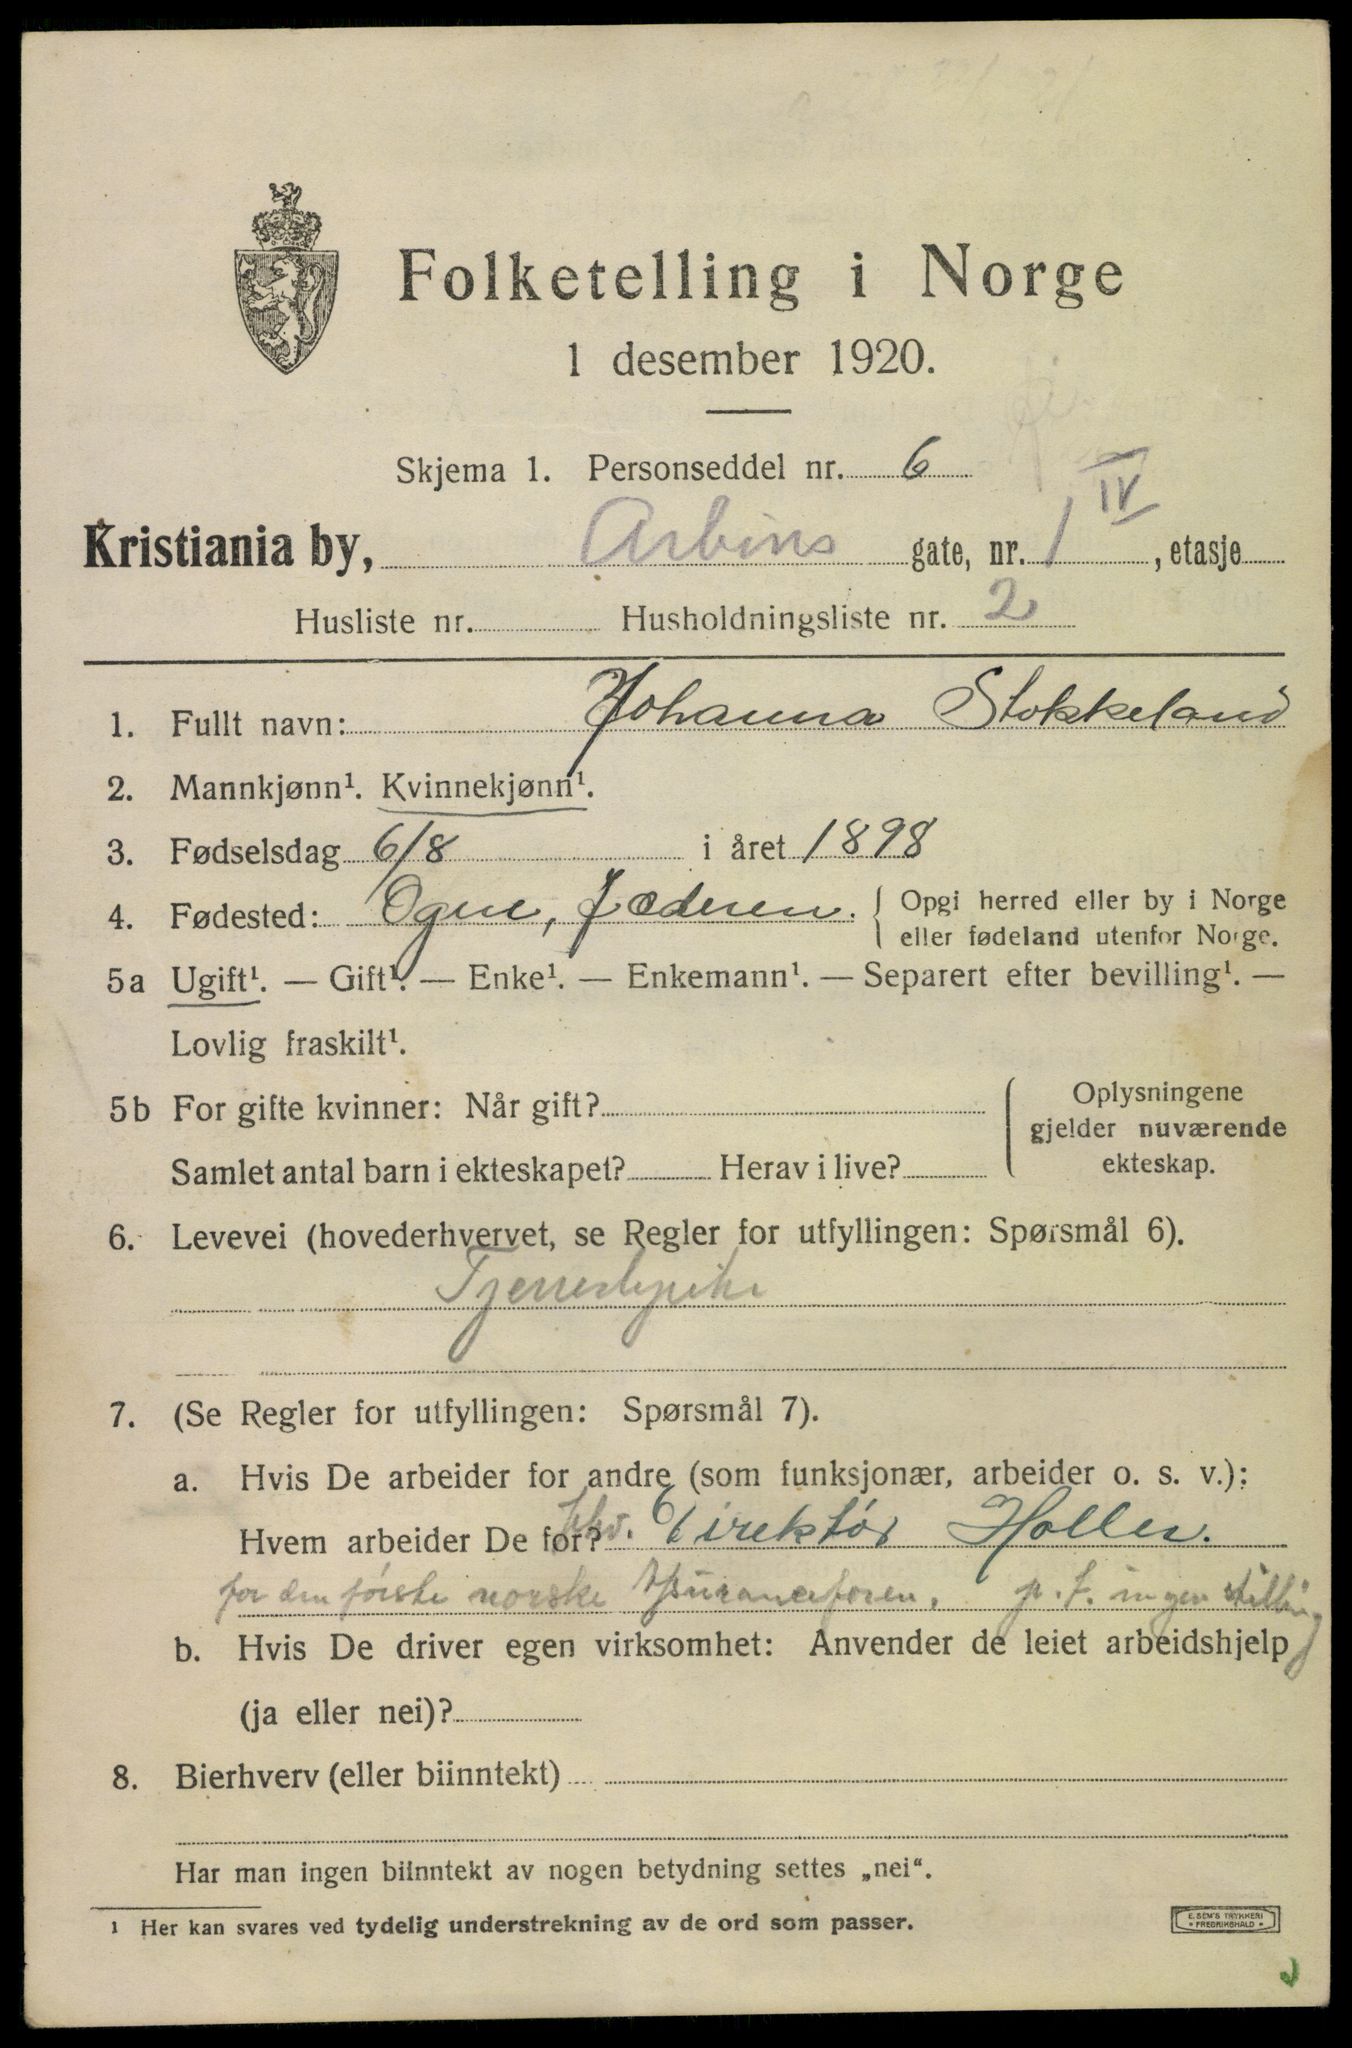 Folketelling i Norge
1 desember 1920.
Skjema 1. Personseddel nr. 6
Kristiania by, Arbins gate, nr. 1 IV, etasje
Husliste nr. Husholdningsliste nr. 2
1. Fullt navn: Johanna Stokkeland
2. Mannkjønn¹. Kvinnekjønn¹.
3. Fødselsdag 6/8 i året 1898
4. Fødested: Ogne, Jæderen. Opgi herred eller by i Norge
eller fødeland utenfor Norge.
5a Ugift¹. — Gift¹. — Enke¹. — Enkemann¹. — Separert efter bevilling¹. —
Lovlig fraskilt¹.
5b For gifte kvinner: Når gift?
Samlet antal barn i ekteskapet? Herav i live?
Oplysningene
gjelder nuværende
ekteskap.
6. Levevei (hovederhvervet, se Regler for utfyllingen: Spørsmål 6).
Tjenestepike
7. (Se Regler for utfyllingen: Spørsmål 7).
a. Hvis De arbeider for andre (som funksjonær, arbeider o. s. v.):
Hvem arbeider De for? Direktør Holler.
for den første norske p. t. ingen stilling
b. Hvis De driver egen virksomhet: Anvender de leiet arbeidshjelp
(ja eller nei)?
8. Bierhverv (eller biinntekt)
Har man ingen biinntekt av nogen betydning settes „nei“.
¹ Her kan svares ved tydelig understrekning av de ord som passer.
E. SEM'S TRYKKERI
• FREDRIKSHALD •